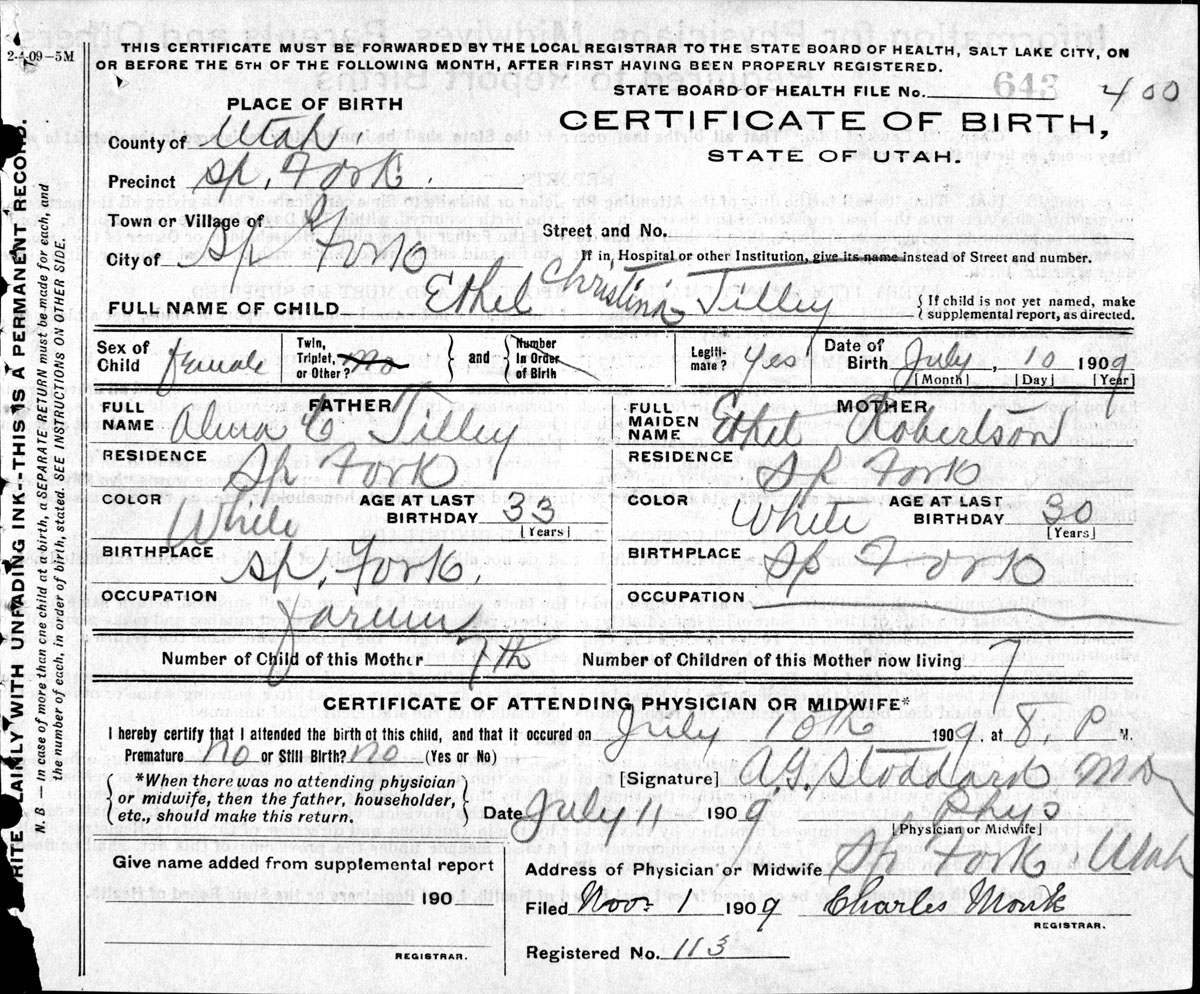 2-4-09-5M
THIS CERTIFICATE MUST BE FORWARDED BY THE LOCAL REGISTRAR TO THE STATE BOARD OF HEALTH, SALT LAKE CITY, ON
OR BEFORE THE 5TH OF THE FOLLOWING MONTH, AFTER FIRST HAVING BEEN PROPERLY REGISTERED.
STATE BOARD OF HEALTH FILE No. 643 400
PLACE OF BIRTH
CERTIFICATE OF BIRTH,
STATE OF UTAH.
County of Utah
Precinct Sp. Fork.
Town or Village of Sp
Street and No.
City of Sp Fork
If in, Hospital or other Institution, give its name instead of Street and number.
FULL NAME OF CHILD Ethel Christina Tilley
{ If child is not yet named, make
{ supplemental report, as directed.
Sex of Child female
Twin, Triplet, or Other? No
and
Number in Order of Birth
Legiti-mate? Yes
Date of Birth July, 10 1909
[Month] [Day] [Year]
FATHER
FULL NAME Alma C Tilley
RESIDENCE Sp Fork
COLOR White
AGE AT LAST BIRTHDAY 33
[Years]
BIRTHPLACE Sp. Fork.
OCCUPATION Farmer
MOTHER
FULL MAIDEN NAME Ethel Robertson
RESIDENCE Sp Fork
COLOR White
AGE AT LAST BIRTHDAY 30
[Years]
BIRTHPLACE Sp Fork
OCCUPATION
Number of Child of this Mother 7th Number of Children of this Mother now living 7
CERTIFICATE OF ATTENDING PHYSICIAN OR MIDWIFE*
I hereby certify that I attended the birth of this child, and that it occured on July 10th 1909. at 8. P M.
Premature no or Still Birth? no (Yes or No)
*When there was no attending physician
or midwife, then the father, householder,
etc., should make this return.
[Signature] A.G. Stoddard MD
Date July 11 1909 Phys
[Physician or Midwife]
Give name added from supplemental report
190
REGISTRAR.
Address of Physician or Midwife Sp Fork Utah
Filed Nov. 1 1909 Charles Monk
REGISTRAR.
Registered No. 113
RITE PLAINLY WITH UNFADING INK--THIS IS A PERMANENT RECORD.
N. B — In case of more than one child at a birth, a SEPARATE RETURN must be made for each, and
the number of each, in order of birth, stated. SEE INSTRUCTIONS ON OTHER SIDE.